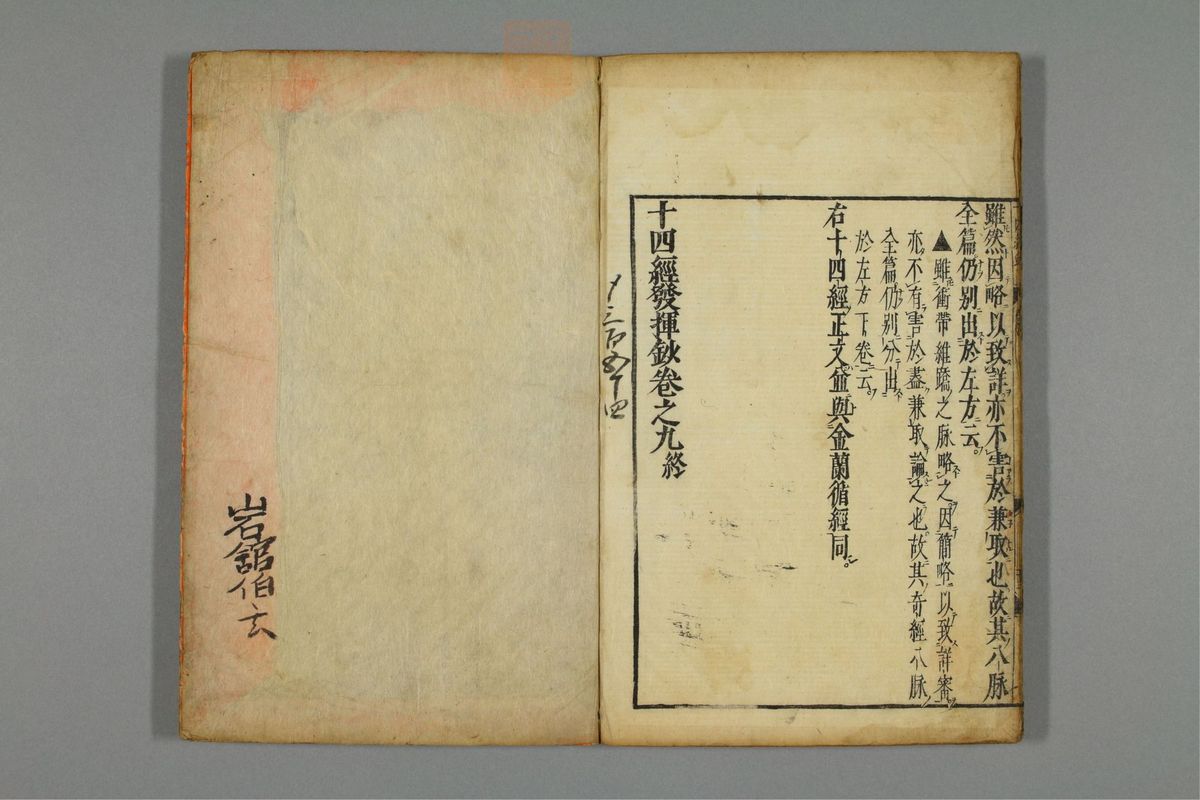 雖然因略以致詳亦不害於兼取也故其八脉
全篇仍別出於左方云
▲雖衝帶維蹻之脉略之因簡略以致詳審
亦不有害於盡兼取論之也故其奇經八脉
全篇仍別分出
於左方下卷云
右十四經正文並與金蘭循經同
十四經發揮鈔卷之九終
岩舘伯玄